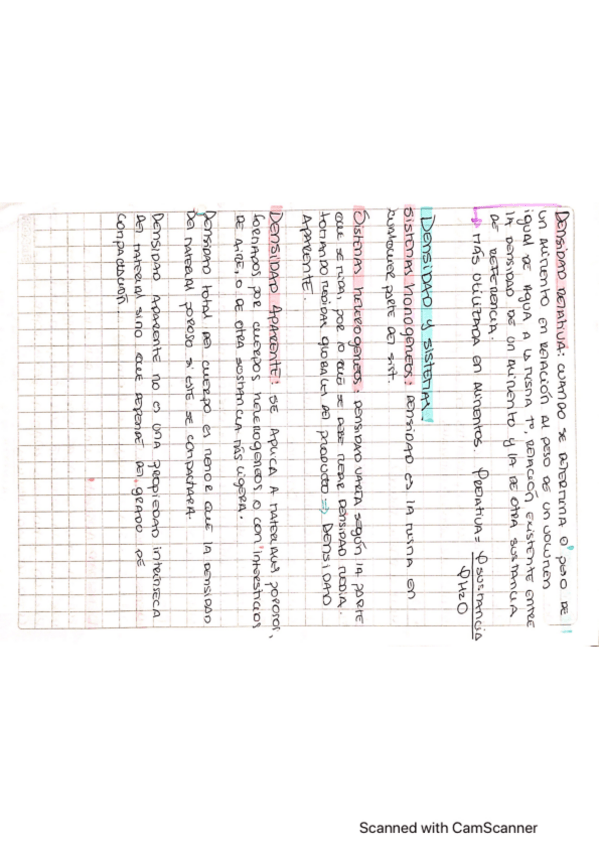 DENSIDAD RELATIVA: CUANDO SE DETERMINA EL PESO DE
UN ALIMENTO EN RELACIÓN AL PESO DE UN VOLUMEN
IGUAL DE AGUA A LA MISMA Tº, RELACIÓN EXISTENTE ENTRE
LA DENSIDAD DE UN ALIMENTO Y LA DE OTRA SUSTANCIA
DE REFERENCIA.
→ MÁS UTILIZADA EN ALIMENTOS. ρRELATIVA = ρSUSTANCIA / ρH2O
DENSIDAD Y SISTEMAS.
SISTEMAS HOMOGÉNEOS: DENSIDAD ES LA MISMA EN
CUALQUIER PARTE DEL SIST.
SISTEMAS HETEROGÉNEOS: DENSIDAD VARÍA SEGÚN LA PARTE
QUE SE MIDA, POR LO QUE SE DEBE MEDIR DENSIDAD MEDIA.
TOMANDO MEDIDAS GLOBALES DEL PRODUCTO => DENSIDAD
APARENTE.
DENSIDAD APARENTE: SE APLICA A MATERIALES POROSOS,
FORMADOS POR CUERPOS HETEROGÉNEOS O CON INTERSTICIOS
DE AIRE, O DE OTRA SUSTANCIA MÁS LIGERA.
DENSIDAD TOTAL DEL CUERPO ES MENOR QUE LA DENSIDAD
DEL MATERIAL POROSO SI ESTE SE COMPACTARA.
DENSIDAD APARENTE NO ES UNA PROPIEDAD INTRÍNSECA
DEL MATERIAL SINO QUE DEPENDE DEL GRADO DE
COMPACTACIÓN.
Scanned with CamScanner